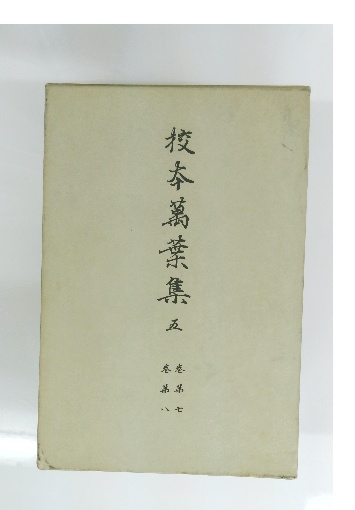 校本萬葉集 五
卷第七
卷第八